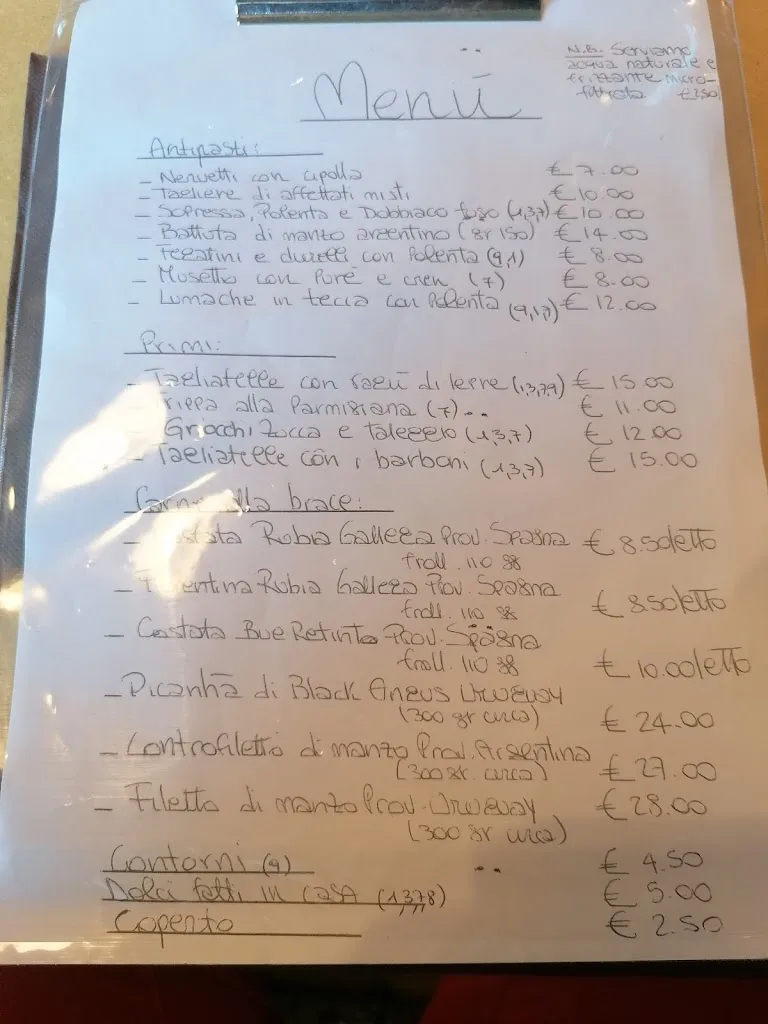 N.B. Serviamo
acqua naturale e
frizzante micro-
filtrata €2,50
Menù
Antipasti:
- Nervetti con cipolla € 7.00
- Tagliere di affettati misti € 10.00
- Sopressa, Polenta e Dobbiaco fuso (1,3,7) € 10.00
- Battuta di manzo argentino (gr 150) € 14.00
- Fegatini e durelli con Polenta (9,1) € 8.00
- Musetto con Purè e cren (7) € 8.00
- Lumache in tecia con Polenta (9,1,7) € 12.00
Primi:
- Tagliatelle con ragù di lepre (1,3,7,9) € 15.00
- Trippa alla Parmigiana (7) € 11.00
- Gnocchi Zucca e taleggio (1,3,7) € 12.00
- Tagliatelle con i barboni (1,3,7) € 15.00
Carne alla brace:
- Costata Rubia Gallega Prov. Spagna € 8.50/etto
froll. 110 gg
- Fiorentina Rubia Gallega Prov. Spagna
froll. 110 gg € 8.50/etto
- Costata Bue Retinto Prov. Spagna
froll. 110 gg € 10.00/etto
- Picanha di Black Angus Uruguay
(300 gr circa) € 24.00
- Controfiletto di manzo Prov. Argentina
(300 gr. circa) € 27.00
- Filetto di manzo Prov. Uruguay € 28.00
(300 gr circa)
Contorni (9) € 4.50
Dolci fatti in casa (1,3,7,8) € 5.00
Coperto € 2.50